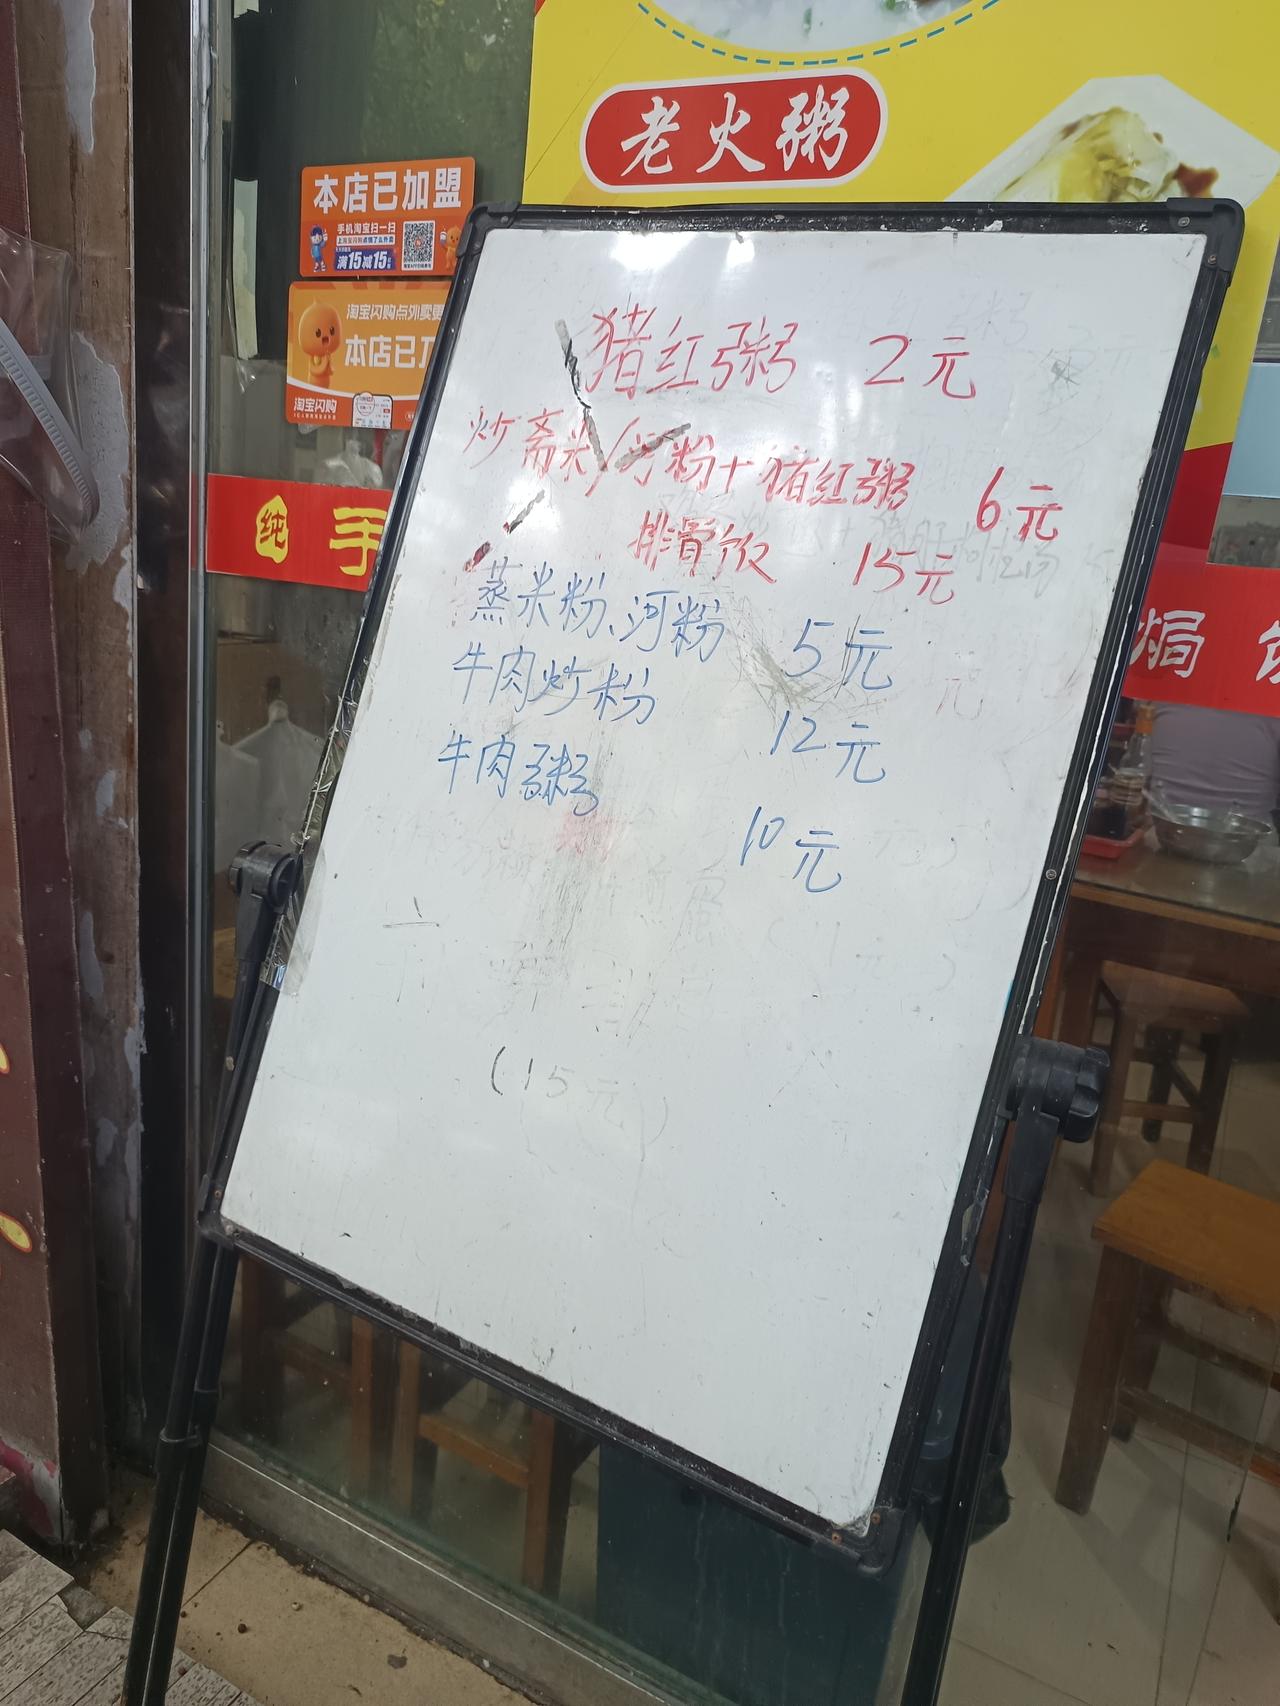 老火粥
本店已加盟
手机淘宝扫一扫
满15减15
淘宝闪购点外卖更
本店已
淘宝闪购
纯手
焗
猪红粥 2元
炒斋米/河粉+猪红粥 6元
排骨饭 15元
蒸米粉、河粉 5元
牛肉炒粉 12元
牛肉粥 10元
(15元)